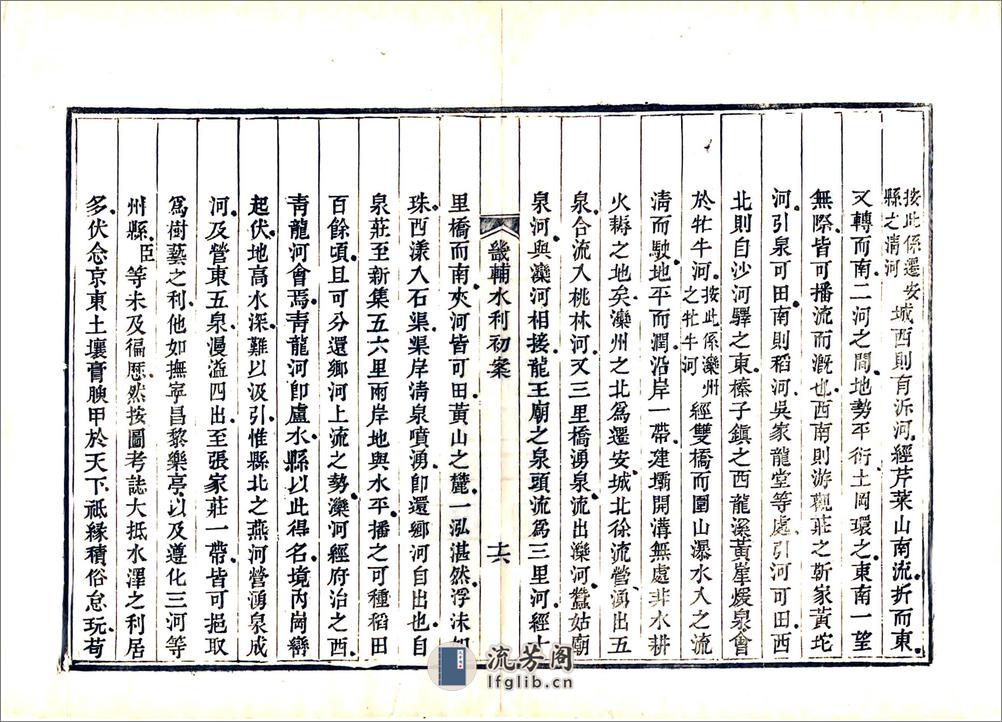 按此係遷安
縣之清河
城西則有沂河經芹菜山南流折而東
又轉而南二河之間地勢平衍土岡環之東南一望
無際皆可播流而漑也西南則游觀莊之靳家黃坨
河引泉可田南則稻河吳家龍堂等處引河可田西
北則自沙河驛之東榛子鎮之西龍溪黃崖煖泉會
於牤牛河
按此係灤州
之牤牛河
經雙橋而圍山瀑水入之流
清而駛地平而潤沿岸一帶建壩開溝無處非水耕
火耨之地矣灤州之北爲遷安城北徐流營湧出五
泉合流入桃林河又三里橋湧泉流出灤河蠶姑廟
泉河與灤河相接龍王廟之泉頭流爲三里河經十
畿輔水利初案
十六
里橋而南夾河皆可田黃山之麓一泓湛然浮沫如
珠西漾入石渠渠岸清泉噴湧卽還鄉河自出也自
泉莊至新集五六里兩岸地與水平播之可種稻田
百餘頃且可分還鄉河上流之勢灤河經府治之西
青龍河會焉青龍河卽盧水縣以此得名境內崗巒
起伏地高水深難以汲引惟縣北之燕河營湧泉成
河及營東五泉漫溢四出至張家莊一帶皆可挹取
爲樹藝之利他如撫寧昌黎樂亭以及遵化三河等
州縣臣等未及徧歷然按圖考誌大抵水澤之利居
多伏念京東土壤膏腴甲於天下祗緣積俗怠玩苟
流芳阁
lfglib.cn